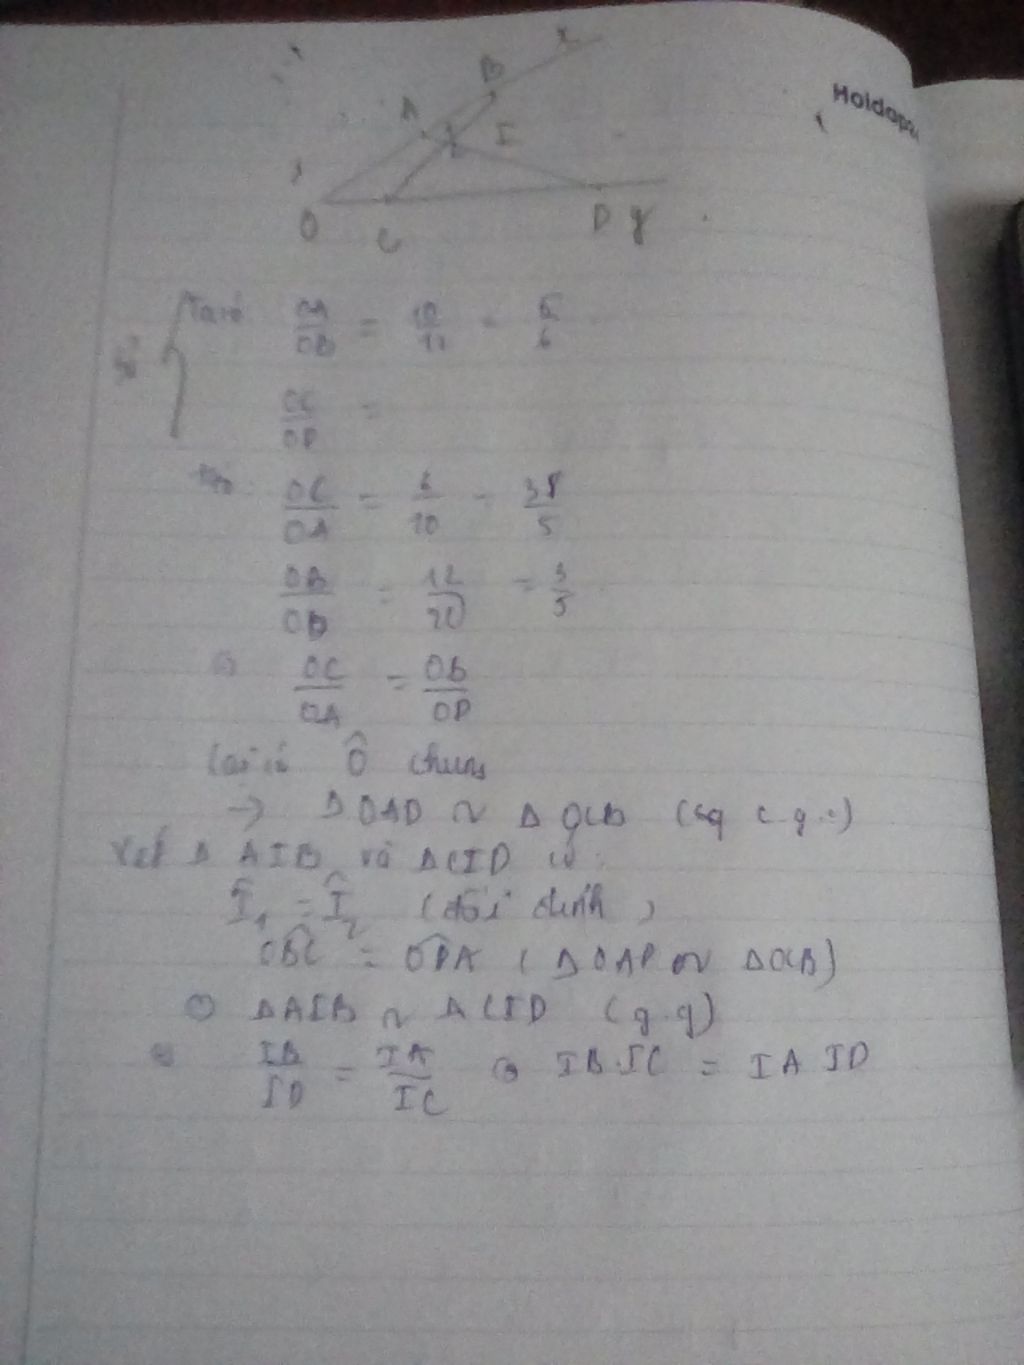 Holdop
x
B
A
I
O C D y
Ta có OA/OB = 10/12 = 5/6
OC/OD =
OC/OA = 6/10 = 3/5
OB/OD = 12/20 = 3/5
OC/OA = OB/OD
Lại có Ô chung
→ Δ OAD ~ Δ OCB (c.g.c)
Xét Δ AIB và Δ CID có:
Î₁ = Î₂ (đối đỉnh)
OBC = ODA (Δ OAD ~ Δ OCB)
ΔAIB ~ ΔCID (g.g)
IB/ID = IA/IC IB.IC = IA ID